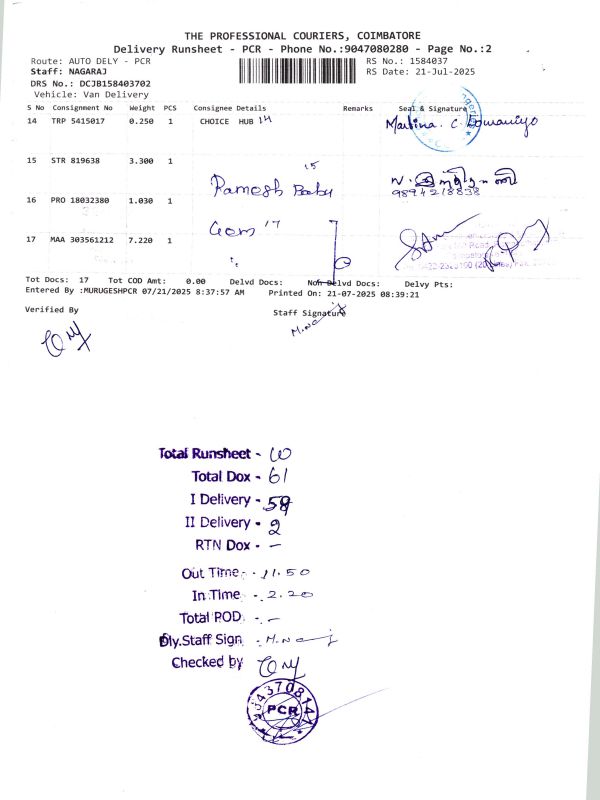 THE PROFESSIONAL COURIERS, COIMBATORE
Delivery Runsheet - PCR - Phone No.:9047080280 - Page No.:2
Route: AUTO DELY - PCR RS No.: 1584037
Staff: NAGARAJ RS Date: 21-Jul-2025
DRS No.: DCJB158403702
Vehicle: Van Delivery
S No Consignment No Weight PCS Consignee Details Remarks Seal & Signature
14 TRP 5415017 0.250 1 CHOICE HUB 14
15 STR 819638 3.300 1 15
Ramesh Baby
9894218838
16 PRO 18032380 1.030 1
Gem 17
17 MAA 303561212 7.220 1
Tot Docs: 17 Tot COD Amt: 0.00 Delvd Docs: Non Delvd Docs: Delvy Pts:
Entered By :MURUGESHPCR 07/21/2025 8:37:57 AM Printed On: 21-07-2025 08:39:21
Verified By Staff Signature
Total Runsheet -
Total Dox - 61
I Delivery - 59
II Delivery - 2
RTN Dox - -
Out Time - 11.50
In Time - 2.20
Total POD - -
Dly.Staff Sign -
Checked by
PCR